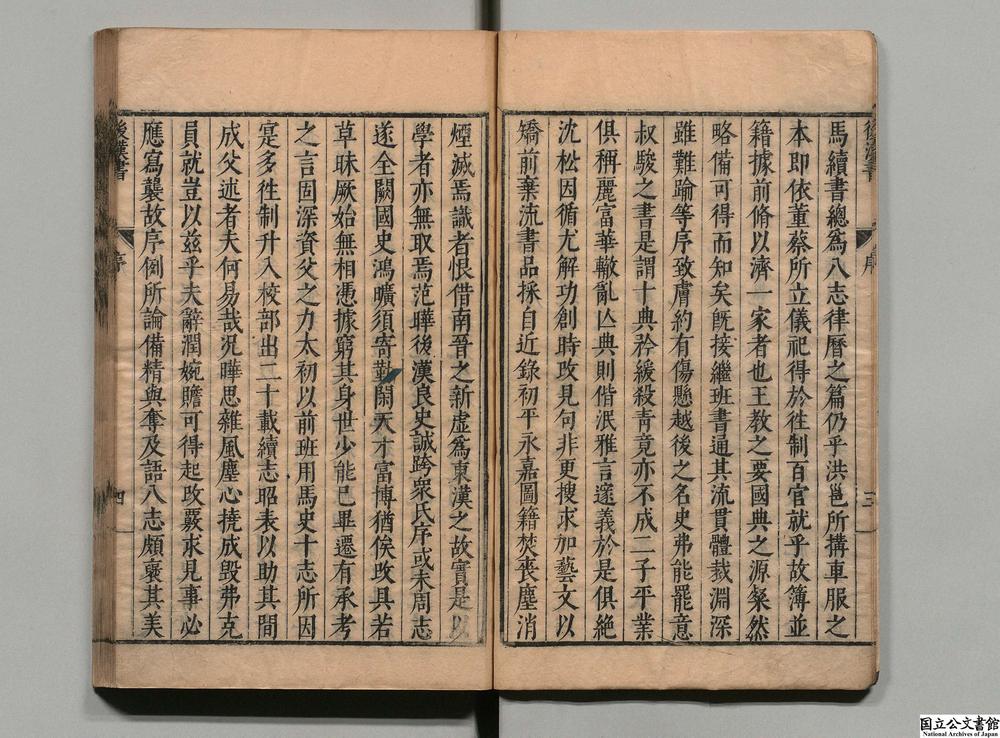 馬續書總為八志律曆之篇仍乎洪邕所搆車服之
本即依董蔡所立儀祀得於徃制百官就乎故簿並
籍據前脩以濟一家者也王教之要國典之源粲然
略備可得而知矣旣接繼班書通其流貫體裁淵深
雖難踰等序致膚約有傷懸越後之名史弗能罷意
叔駿之書是謂十典矜緩殺青竟亦不成二子平業
俱稱麗富華轍亂亾典則偕泯雅言邃義於是俱絕
沈松因循尤解功創時攺見句非更搜求加藝文以
矯前棄流書品採自近錄初平永嘉圖籍焚喪塵消
煙滅焉識者恨借南晉之新虛為東漢之故實是以
學者亦無取焉范曄後漢良史誠跨衆氏序或未周志
遂全闕國史鴻曠須寄勤閑天才富博猶俟攺具若
草昧厥始無相憑據窮其身世少能已畢遷有承考
之言固深資父之力太初以前班用馬史十志所因
寔多徃制升入校部出二十載續志昭表以助其間
成父述者夫何易哉況曄思雜風塵心撓成毀弗克
員就豈以茲乎夫辭潤婉贍可得起攺覈求見事必
應寫襲故序例所論備精與奪及語八志頗襃其美
後漢書
序
三
後漢書
序
四
国立公文書館
National Archives of Japan